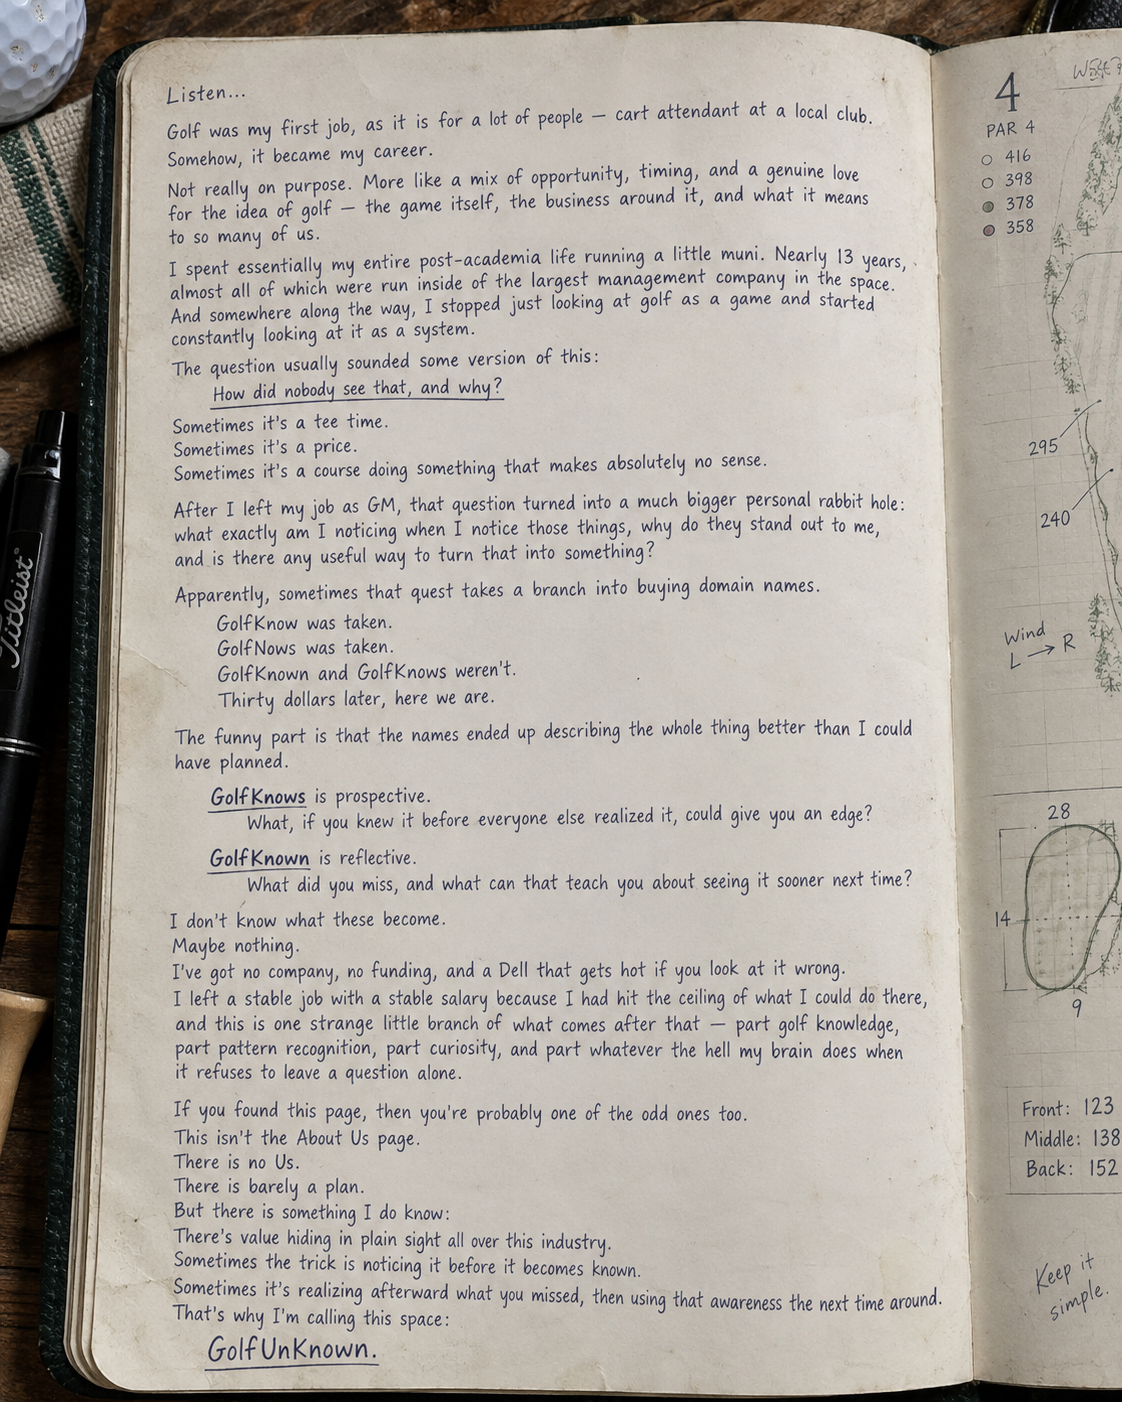 Listen...
Golf was my first job, as it is for a lot of people — cart attendant at a local club.
Somehow, it became my career.
Not really on purpose. More like a mix of opportunity, timing, and a genuine love
for the idea of golf — the game itself, the business around it, and what it means
to so many of us.
I spent essentially my entire post-academia life running a little muni. Nearly 13 years,
almost all of which were run inside of the largest management company in the space.
And somewhere along the way, I stopped just looking at golf as a game and started
constantly looking at it as a system.
The question usually sounded some version of this:
How did nobody see that, and why?
Sometimes it's a tee time.
Sometimes it's a price.
Sometimes it's a course doing something that makes absolutely no sense.
After I left my job as GM, that question turned into a much bigger personal rabbit hole:
what exactly am I noticing when I notice those things, why do they stand out to me,
and is there any useful way to turn that into something?
Apparently, sometimes that quest takes a branch into buying domain names.
GolfKnow was taken.
GolfNows was taken.
GolfKnown and GolfKnows weren't.
Thirty dollars later, here we are.
The funny part is that the names ended up describing the whole thing better than I could
have planned.
GolfKnows is prospective.
What, if you knew it before everyone else realized it, could give you an edge?
GolfKnown is reflective.
What did you miss, and what can that teach you about seeing it sooner next time?
I don't know what these become.
Maybe nothing.
I've got no company, no funding, and a Dell that gets hot if you look at it wrong.
I left a stable job with a stable salary because I had hit the ceiling of what I could do there,
and this is one strange little branch of what comes after that — part golf knowledge,
part pattern recognition, part curiosity, and part whatever the hell my brain does when
it refuses to leave a question alone.
If you found this page, then you're probably one of the odd ones too.
This isn't the About Us page.
There is no Us.
There is barely a plan.
But there is something I do know:
There's value hiding in plain sight all over this industry.
Sometimes the trick is noticing it before it becomes known.
Sometimes it's realizing afterward what you missed, then using that awareness the next time around.
That's why I'm calling this space:
GolfUnKnown.
4
PAR 4
416
398
378
358
295
240
Wind
L → R
28
14
9
Front: 123
Middle: 138
Back: 152
Keep it
simple.
Titleist